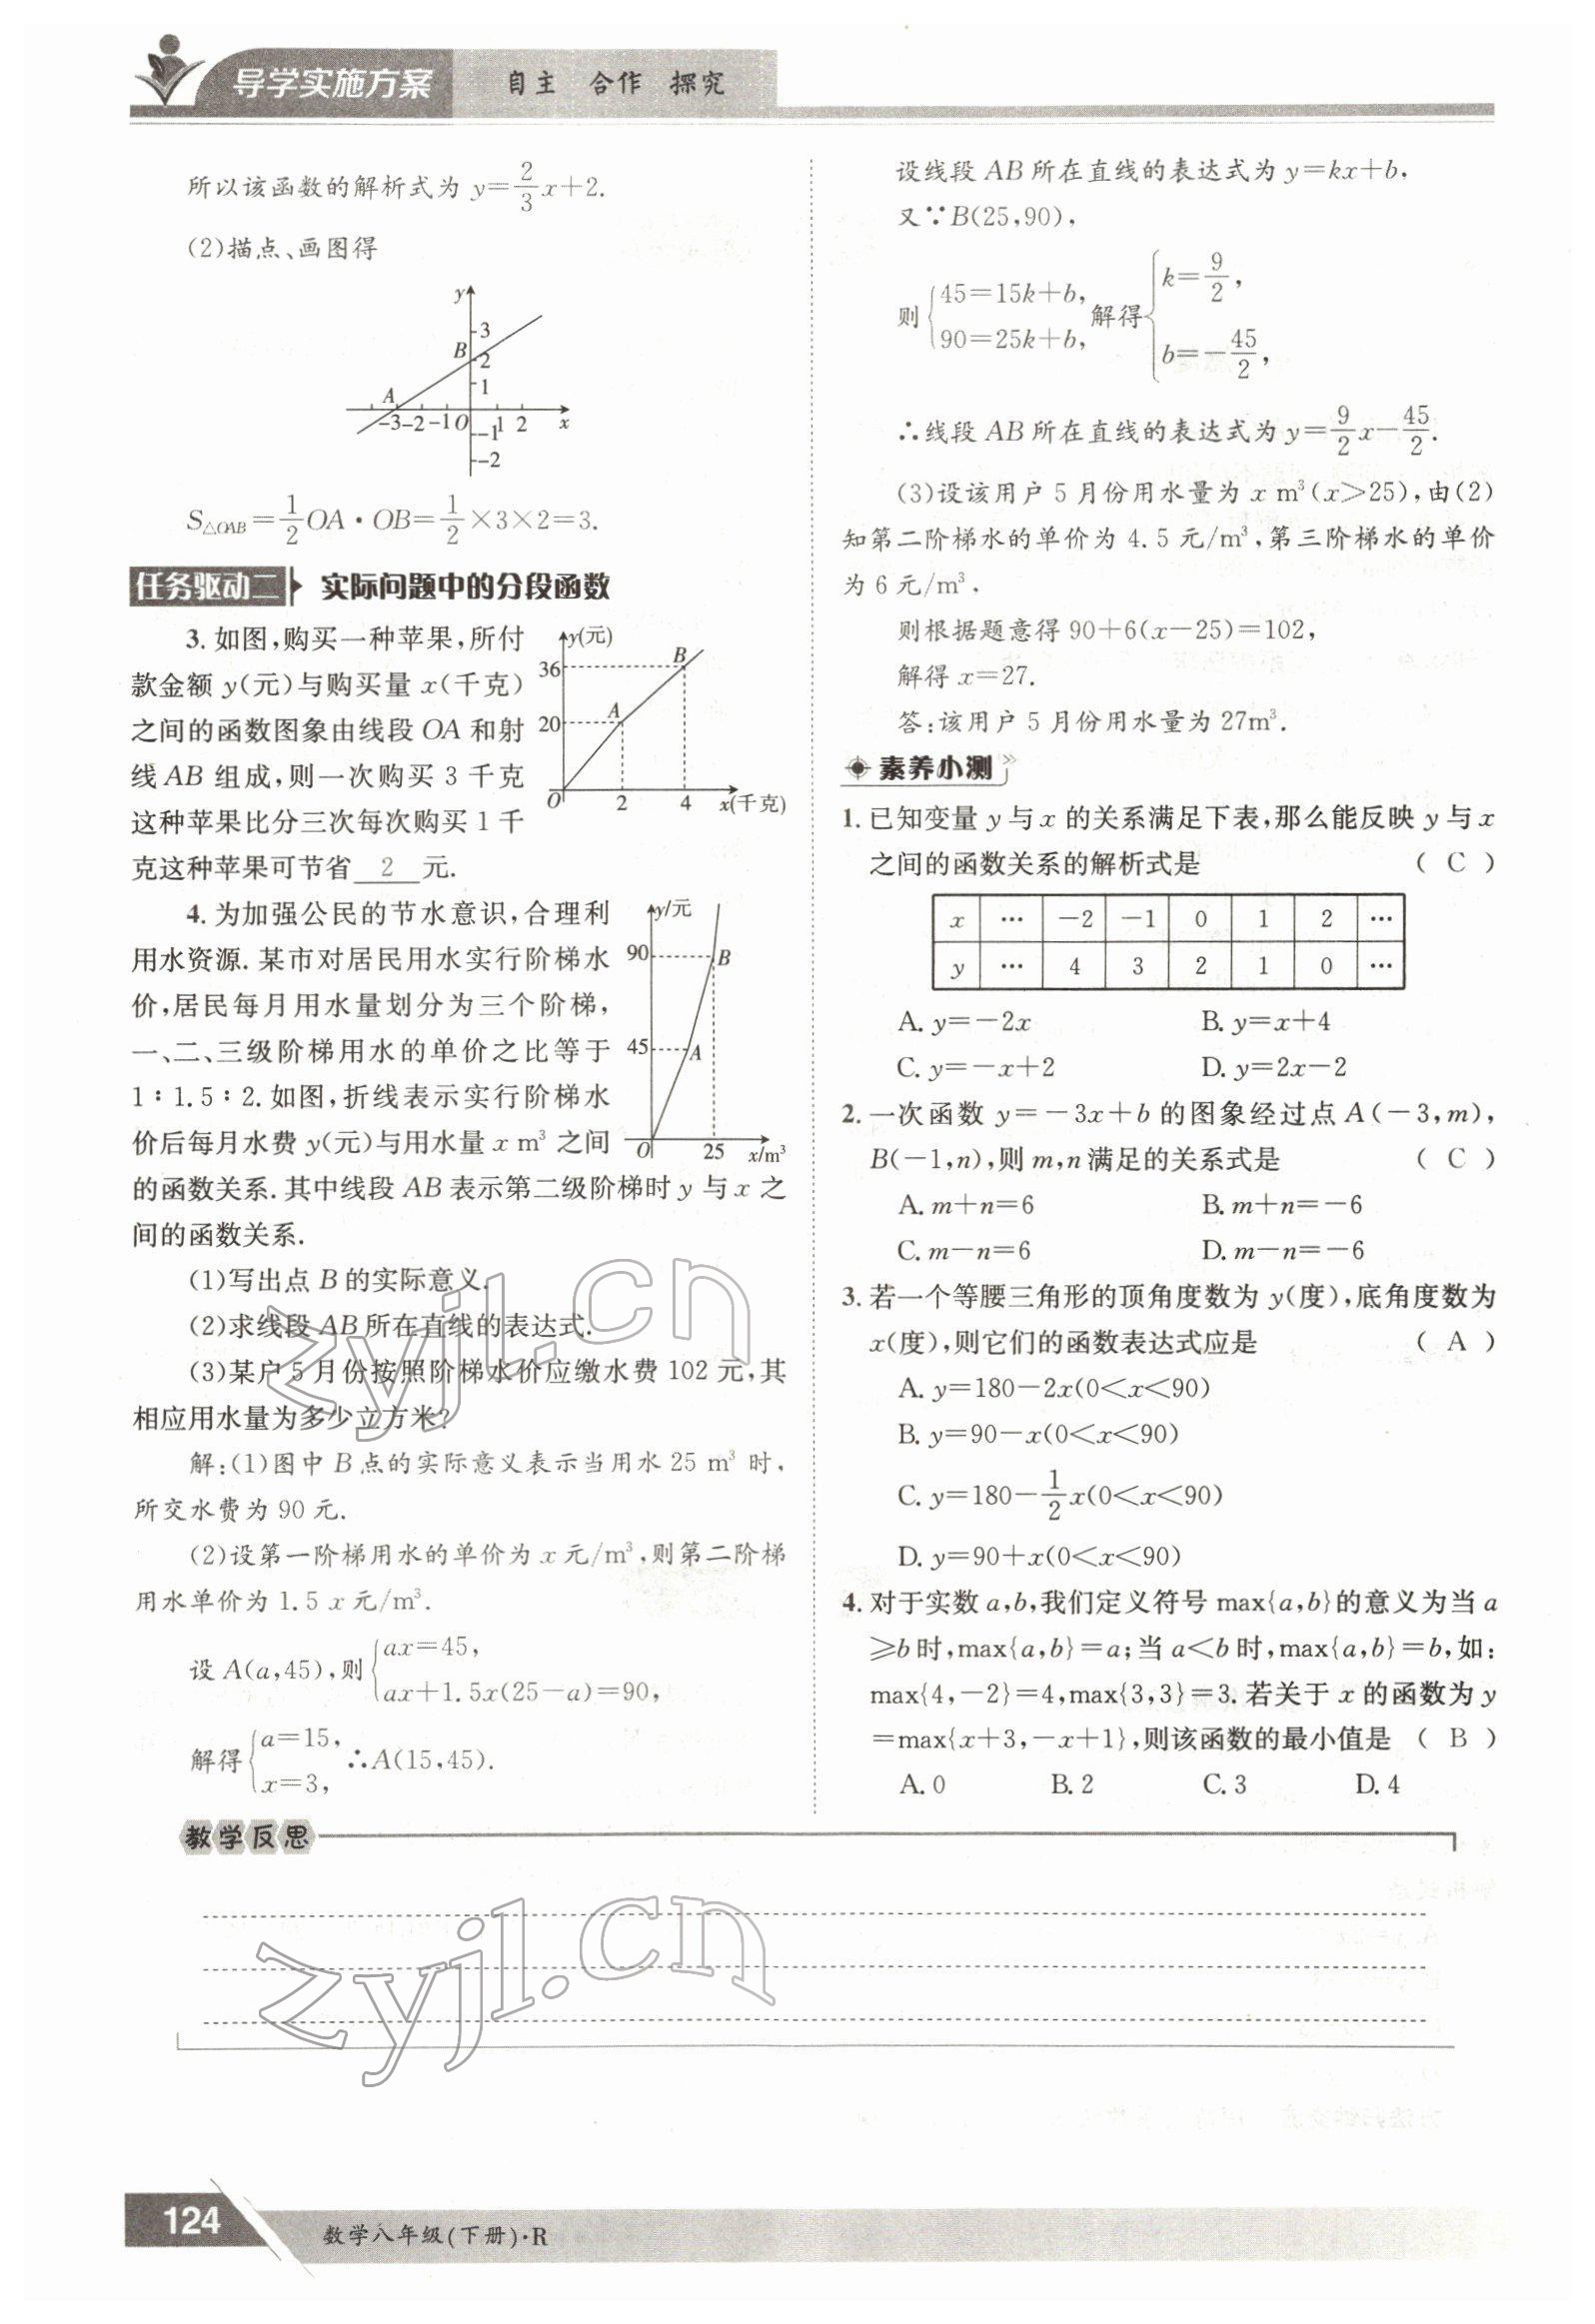 导学实施方案 自主 合作 探究
所以该函数的解析式为 y=2/3x+2.
(2)描点、画图得
y
3
B
2
1
A
-3 -2 -1 O 1 2 x
-1
-2
S△OAB=1/2OA·OB=1/2×3×2=3.
任务驱动二 实际问题中的分段函数
3. 如图,购买一种苹果,所付
款金额 y(元)与购买量 x(千克)
之间的函数图象由线段 OA 和射
线 AB 组成,则一次购买 3 千克
这种苹果比分三次每次购买 1 千
克这种苹果可节省 2 元.
y(元)
36
B
20
A
O 2 4 x(千克)
4. 为加强公民的节水意识,合理利
用水资源. 某市对居民用水实行阶梯水
价,居民每月用水量划分为三个阶梯,
一、二、三级阶梯用水的单价之比等于
1∶1.5∶2. 如图,折线表示实行阶梯水
价后每月水费 y(元)与用水量 x m³ 之间
的函数关系. 其中线段 AB 表示第二级阶梯时 y 与 x 之
间的函数关系.
y/元
90
B
45
A
O 25 x/m³
(1)写出点 B 的实际意义.
(2)求线段 AB 所在直线的表达式.
(3)某户 5 月份按照阶梯水价应缴水费 102 元,其
相应用水量为多少立方米?
解:(1)图中 B 点的实际意义表示当用水 25 m³ 时,
所交水费为 90 元.
(2)设第一阶梯用水的单价为 x 元/m³,则第二阶梯
用水单价为 1.5 x 元/m³.
设 A(a,45),则{ax=45,
ax+1.5x(25-a)=90,
解得{a=15,
x=3, ∴A(15,45).
设线段 AB 所在直线的表达式为 y=kx+b,
又∵B(25,90),
则{45=15k+b,
90=25k+b, 解得{k=9/2,
b=-45/2,
∴线段 AB 所在直线的表达式为 y=9/2x-45/2.
(3)设该用户 5 月份用水量为 x m³(x>25),由(2)
知第二阶梯水的单价为 4.5 元/m³,第三阶梯水的单价
为 6 元/m³.
则根据题意得 90+6(x-25)=102,
解得 x=27.
答:该用户 5 月份用水量为 27m³.
素养小测
1. 已知变量 y 与 x 的关系满足下表,那么能反映 y 与 x
之间的函数关系的解析式是 ( C )
x … -2 -1 0 1 2 …
y … 4 3 2 1 0 …
A. y=-2x B. y=x+4
C. y=-x+2 D. y=2x-2
2. 一次函数 y=-3x+b 的图象经过点 A(-3,m),
B(-1,n),则 m,n 满足的关系式是 ( C )
A. m+n=6 B. m+n=-6
C. m-n=6 D. m-n=-6
3. 若一个等腰三角形的顶角度数为 y(度),底角度数为
x(度),则它们的函数表达式应是 ( A )
A. y=180-2x(0<x<90)
B. y=90-x(0<x<90)
C. y=180-1/2x(0<x<90)
D. y=90+x(0<x<90)
4. 对于实数 a,b,我们定义符号 max{a,b}的意义为当 a
≥b 时,max{a,b}=a;当 a<b 时,max{a,b}=b,如:
max{4,-2}=4,max{3,3}=3. 若关于 x 的函数为 y
=max{x+3,-x+1},则该函数的最小值是 ( B )
A. 0 B. 2 C. 3 D. 4
教学反思
zyjl.cn
zyjl.cn
124 数学八年级(下册)·R